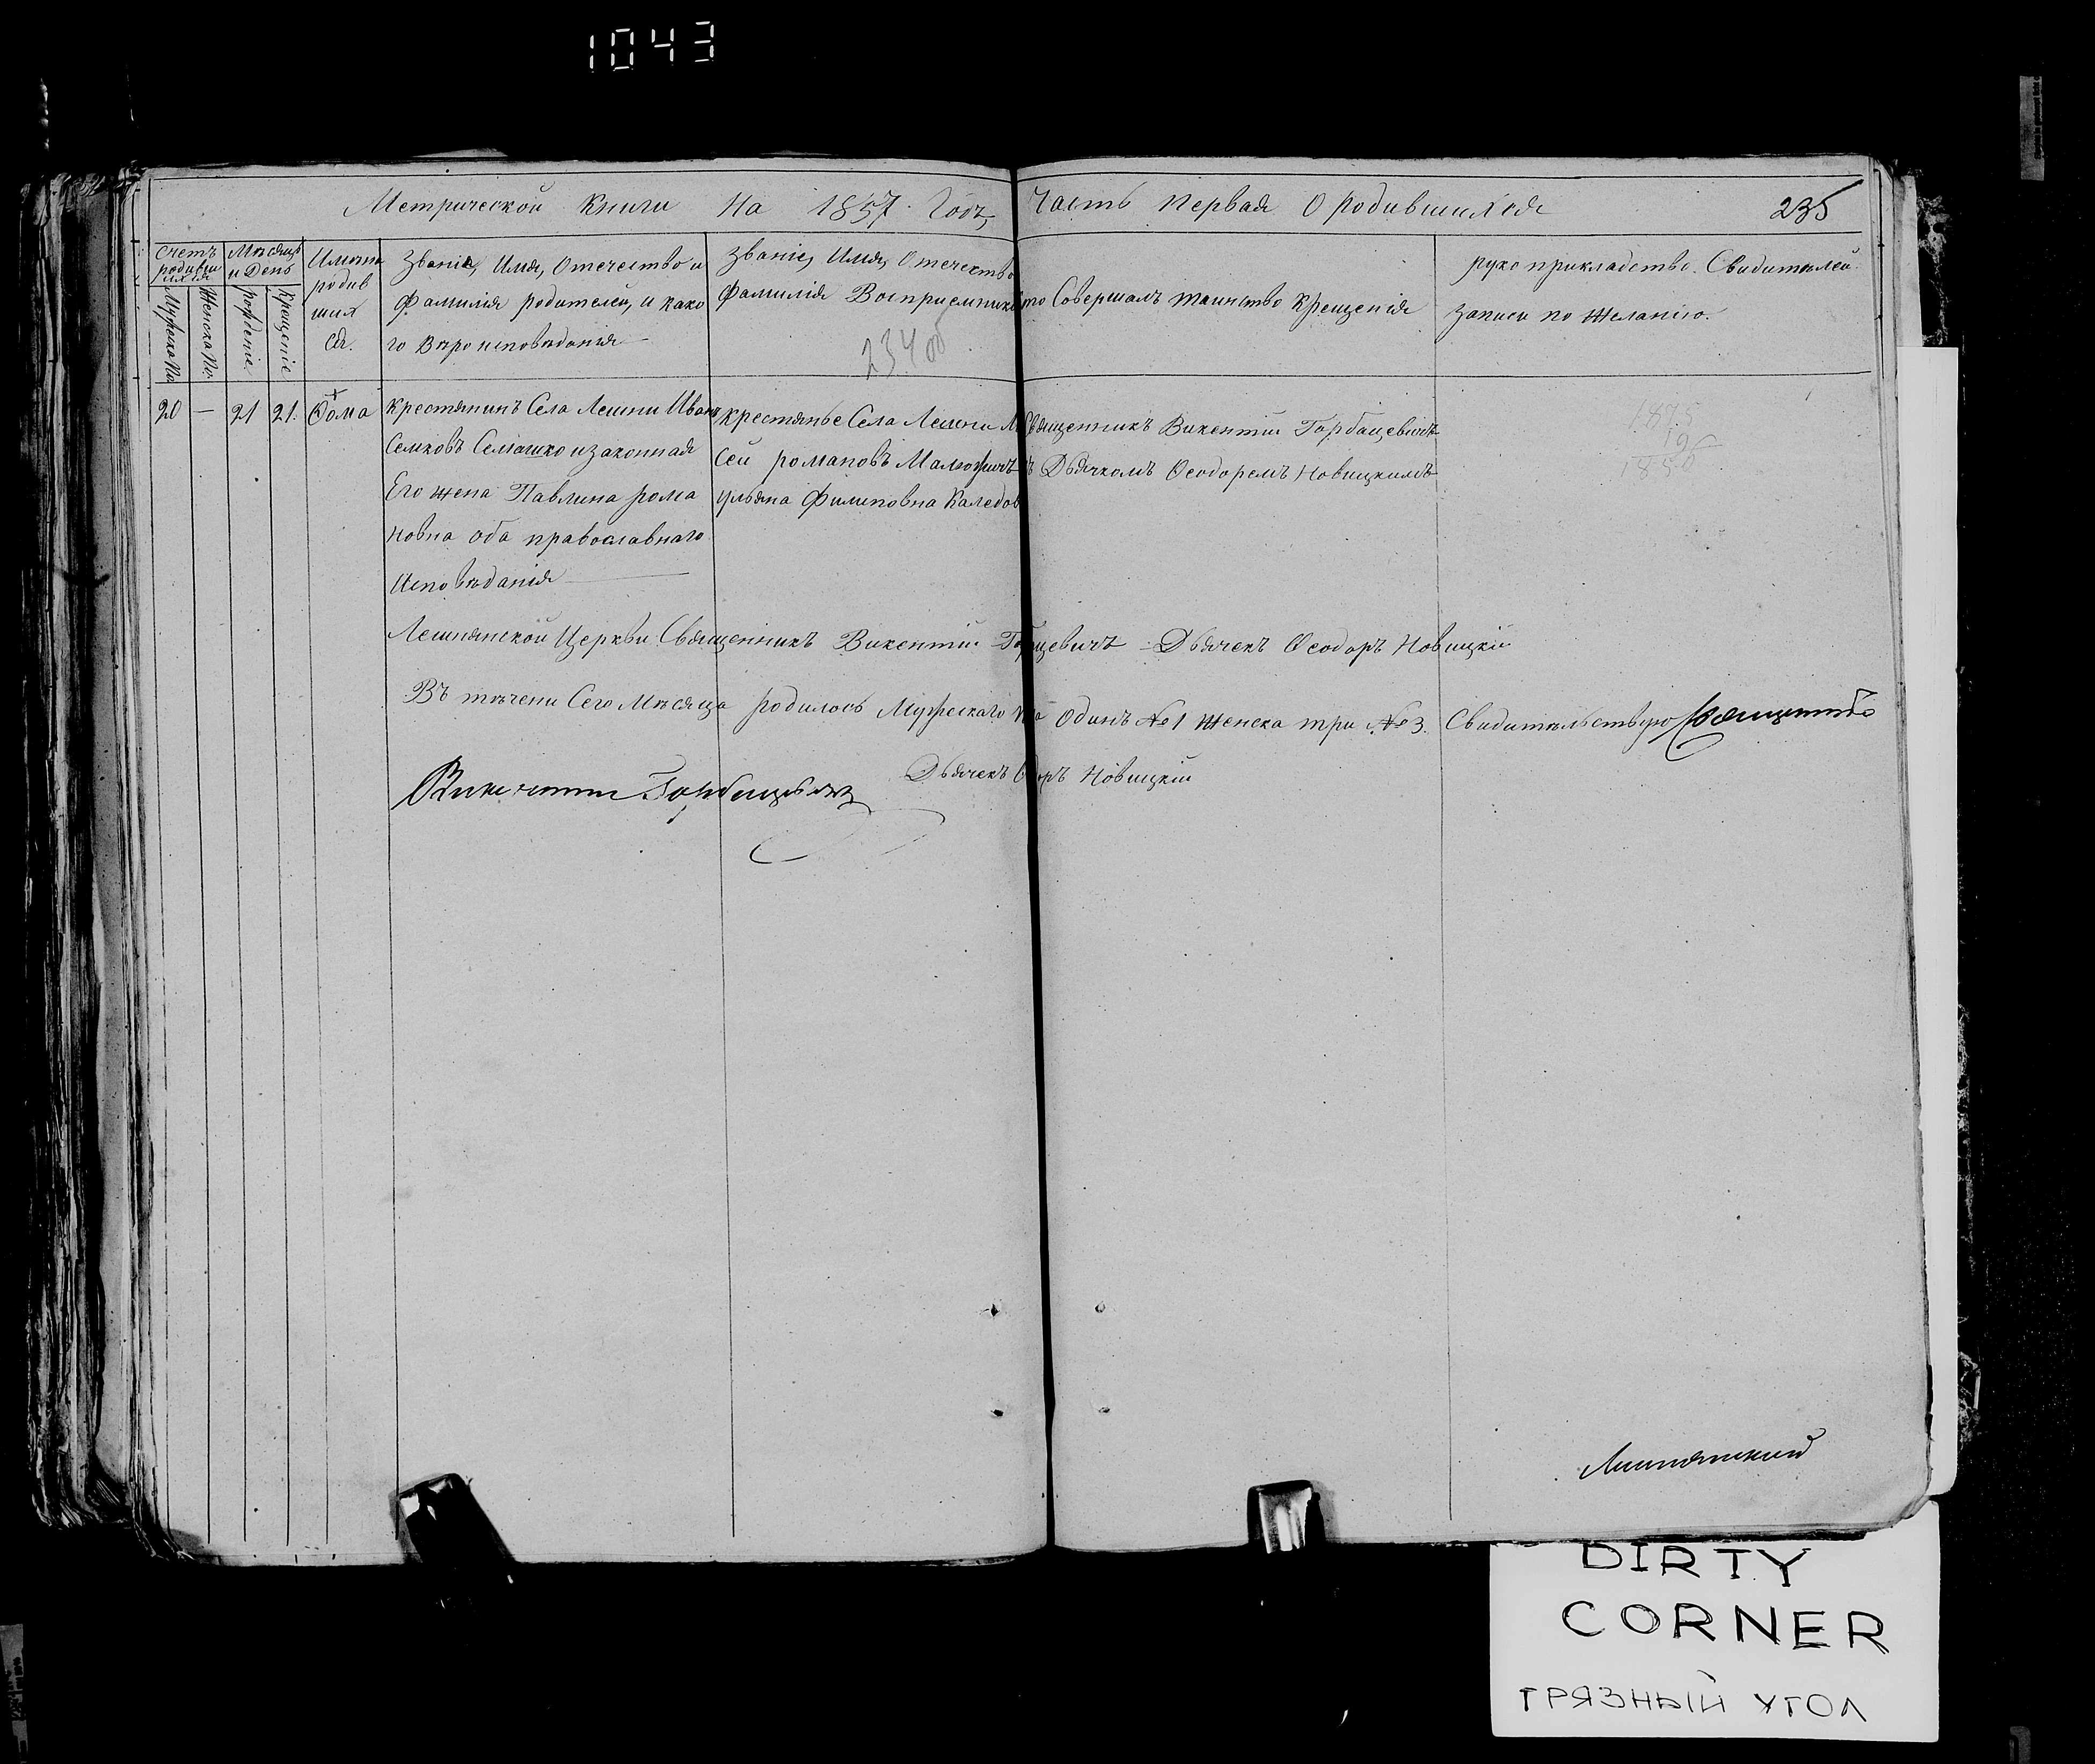 1043
Метрической книги на 1857 Годъ, Часть первая о родившихся 235
Счетъ родившихся
Мужеска По
Женска По
Мѣсяцъ и День
рожденіе
Крещеніе
Имена
родив
ших
ся.
Званіе, Имя, Отечество и
фамилія родителей, и како
го Вѣроисповѣданія
Званіе, Имя, Отечество
фамилія Восприемнико
то Совершалъ таинство Крещенія
руко прикладство Свидителей
записи по желанію.
234 об
20 — 21 21. Ѳома
Крестянинъ Села Лешни Иванъ
Семковъ Семашко изаконная
Его жена Павлина рома
новна оба православнаго
Исповѣданія
крестянье Села Лешни
сей романовъ Малюжичъ
ульяна Филиповна Каледов
Священникъ Викентій Горбацевичъ
ъ Дьячкомъ Ѳеодоремъ Новицкимъ
1875
19
185
Лешнянской Церкви Священникъ Викентій Горбацевичъ Дьячекъ Ѳеодоръ Новицкій
Въ течени Сего Мѣсяца родилось Мужескаго по Одинъ №1 Женска три №3. Свидительствую Священникъ
Викентій Горбацевичъ
Дьячекъ Ѳ оръ Новицкій
Лешнянский
DIRTY
CORNER
ГРЯЗНЫЙ УГОЛ